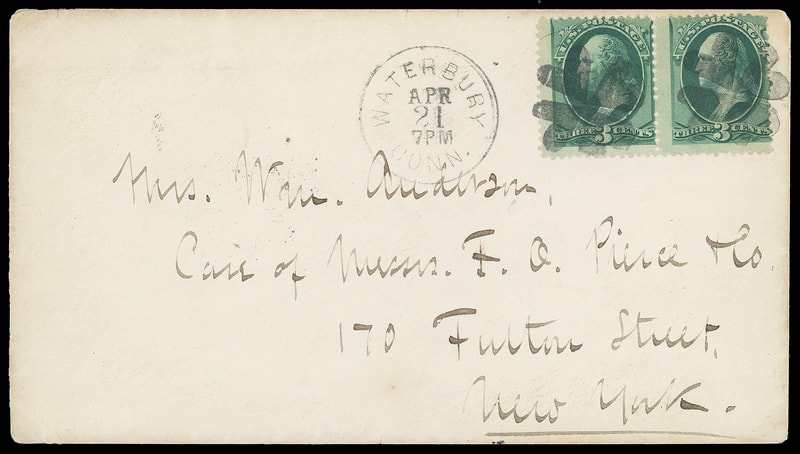 WATERBURY
APR
21
7PM
CONN.
U.S. POSTAGE
THREE 3 CENTS
U.S. POSTAGE
THREE 3 CENTS
Mrs. Wm. Anderson,
Care of Messrs. F. O. Pierce & Co.
170 Fulton Street,
New York.